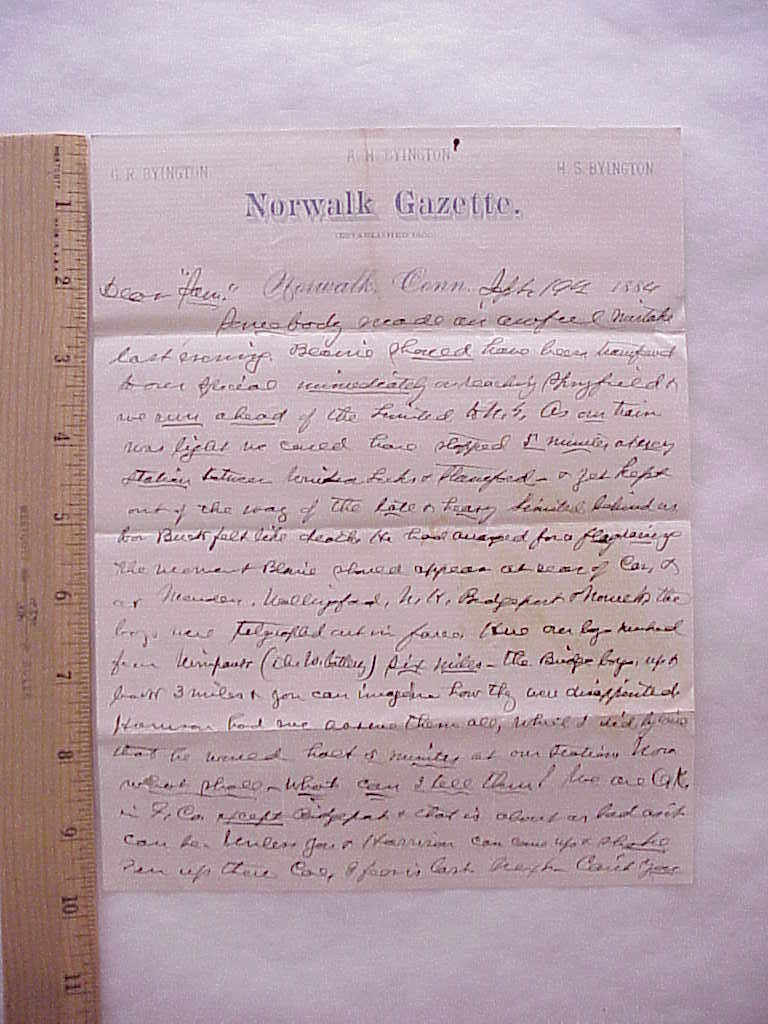 A. H. BYINGTON
G. R. BYINGTON H. S. BYINGTON
Norwalk Gazette.
Dear "Fess." Norwalk, Conn. 1884
Somebody made an awful mistake
last evening. Blaine should have been transferred
to our special immediately on reaching Springfield &
we run ahead of the Limited to N.Y. As our train
was light we could have stopped 5 minutes at every
station between Windsor Locks & Stamford - & yet kept
out of the way of the late & heavy Limited behind us
Buck felt like death. He had arranged for a
the moment Blaine should appear at rear of Car, &
at Meriden, Wallingford, N.H, Bridgeport & Norwalk the
boys were telegraphed out in force. Here our boys marched
from Winnipauk six miles - the Bridge boys, up &
back 3 miles & you can imagine how they were disappointed.
Harrison had me assure them all, which I did
that he would halt 5 minutes at our station. Now
what shall - what can I tell them? We are O.K.
in F. Co. except Bridgeport & that is about as bad as it
can be. Unless you & Harrison can come up &
up there I fear is lost Can't you
1
2
3
4
5
6
7
8
9
10
11